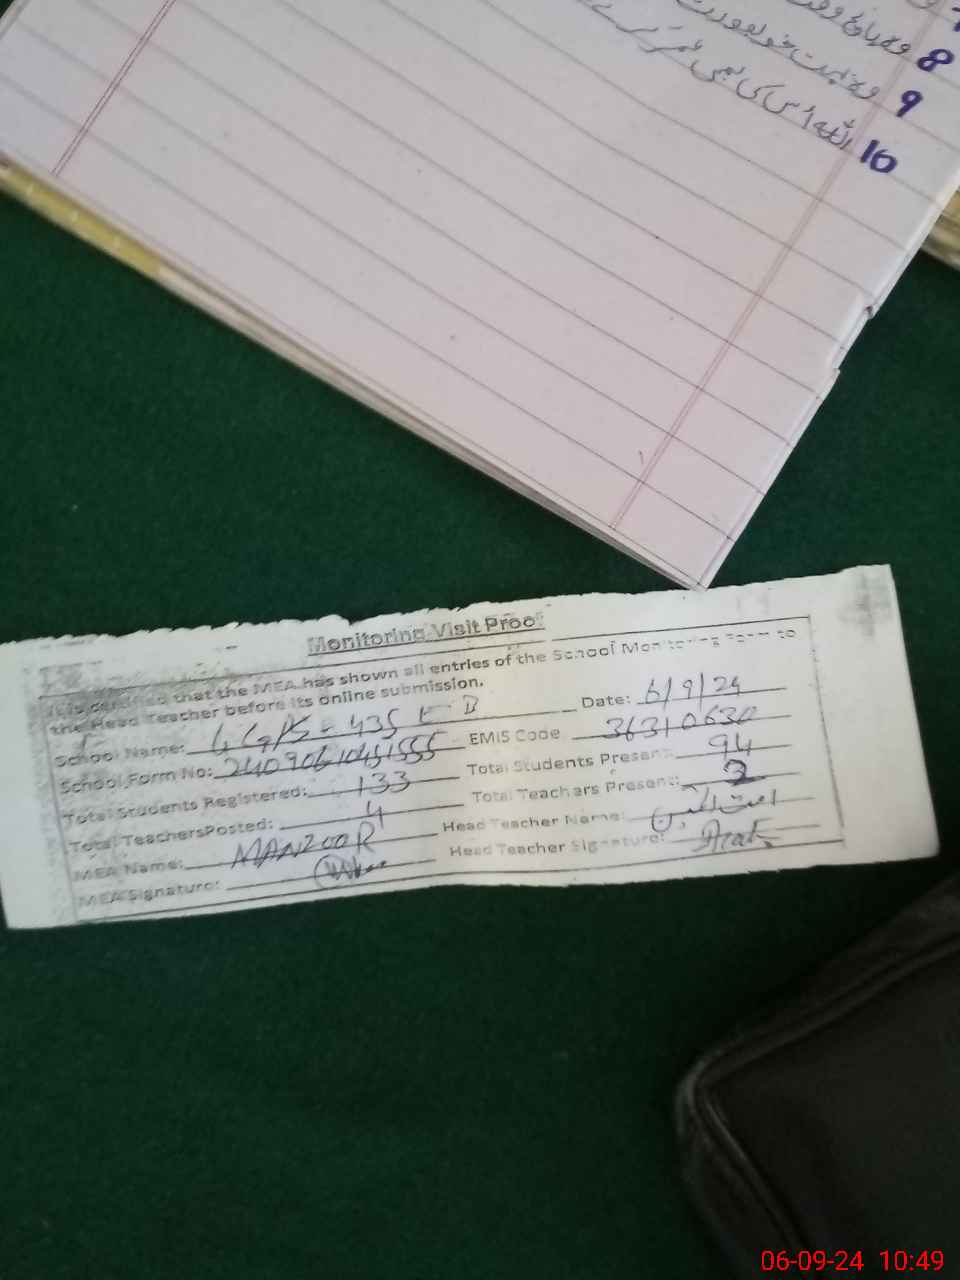 8 وہ باغ وقت
9 وہ بہت خوبصورت
10 اللہ اس کی بھی
Monitoring Visit Proof
It is certified that the MEA has shown all entries of the School Monitoring Form to
the Head Teacher before its online submission.
School Name: GGPS - 435 E B Date: 6/9/24
School Form No: 24090610451555 EMIS Code 36310630
Total Students Registered: 133 Total Students Present: 94
Total TeachersPosted: 4 Total Teachers Present:
MEA Name: MANZOOR Head Teacher Name:
MEA Signature: Head Teacher Signature:
06-09-24 10:49